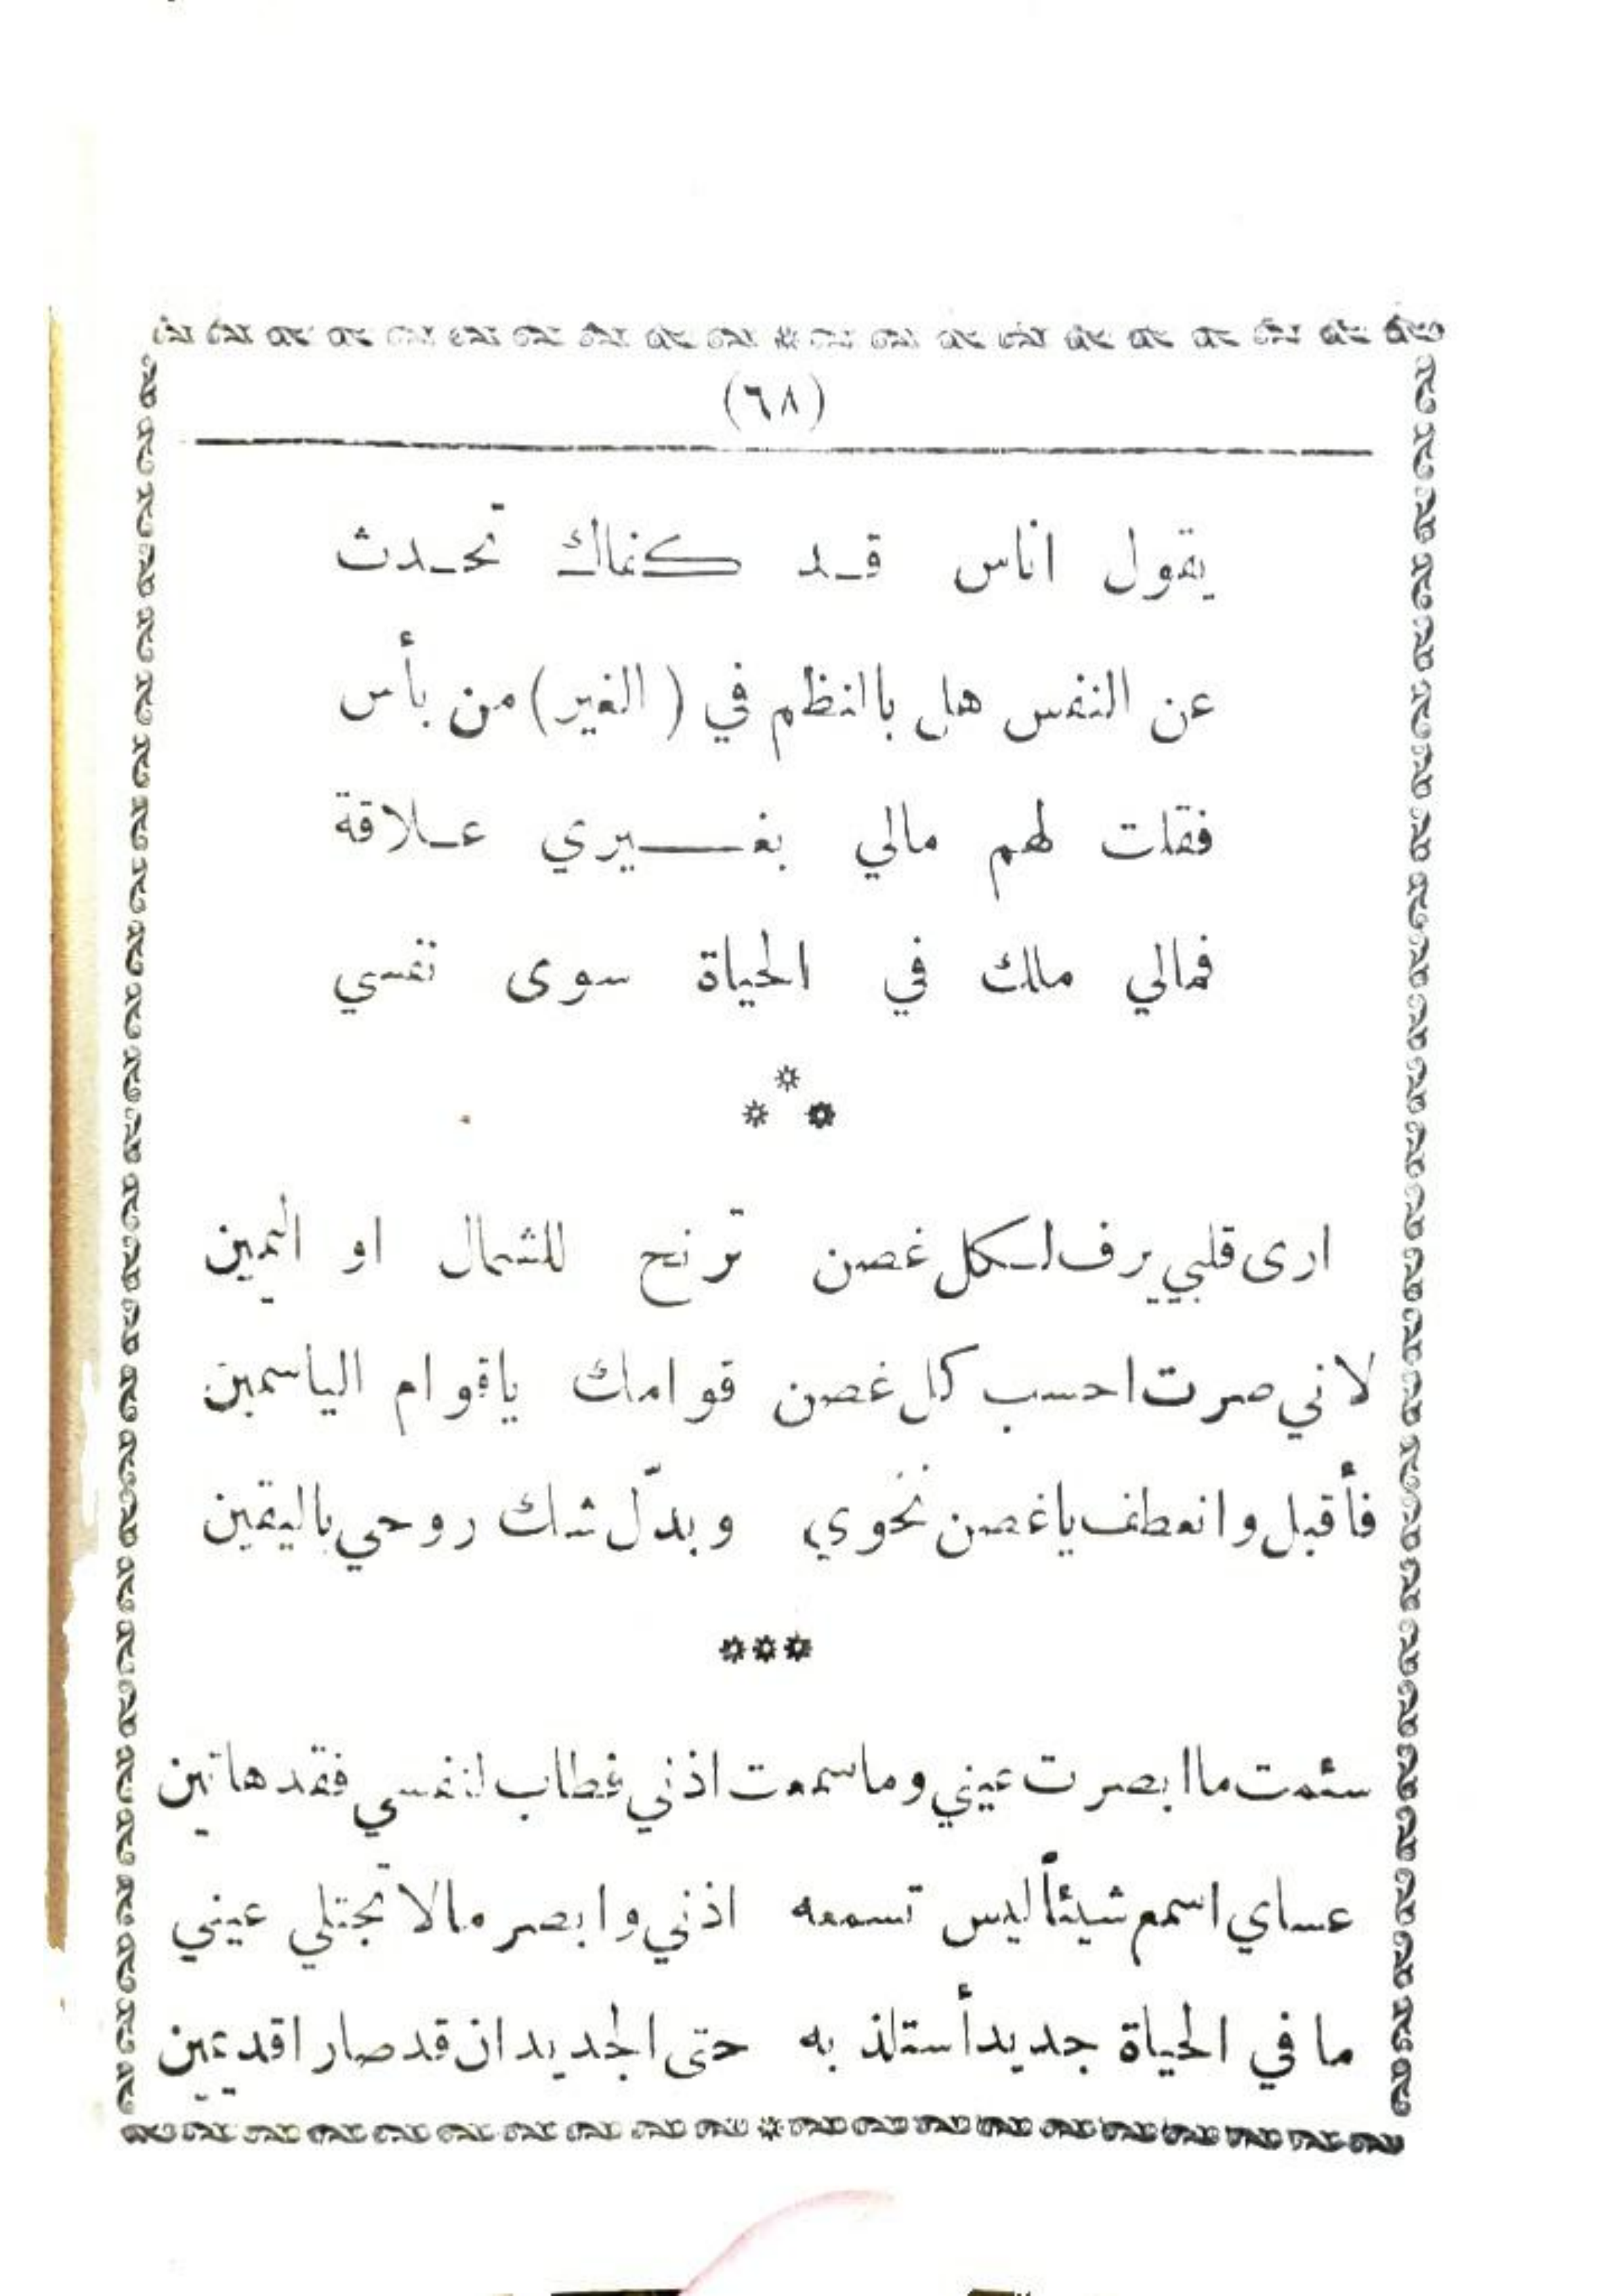 (٦٨)
يقول اناس قد كفاك تحدث
عن النفس هل بالنظم في ( الغير) من بأس
فقلت لهم مالي بغيري علاقة
فمالي ملك في الحياة سوى نفسي
*
* *
ارى قلبي يرف لكل غصن ترنح للشمال او اليمين
لاني صرت احسب كل غصن قوامك ياقوام الياسمين
فأقبل وانعطف ياغصن نحوي وبدّل شك روحي باليقين
***
سئمت ما ابصرت عيني وما سمعت اذني فطاب لنفسي فقد هاتين
عساي اسمع شيئاً ليس تسمعه اذني وابصر مالا تجتلي عيني
ما في الحياة جديد أستلذ به حتى الجديدان قد صارا قديمين